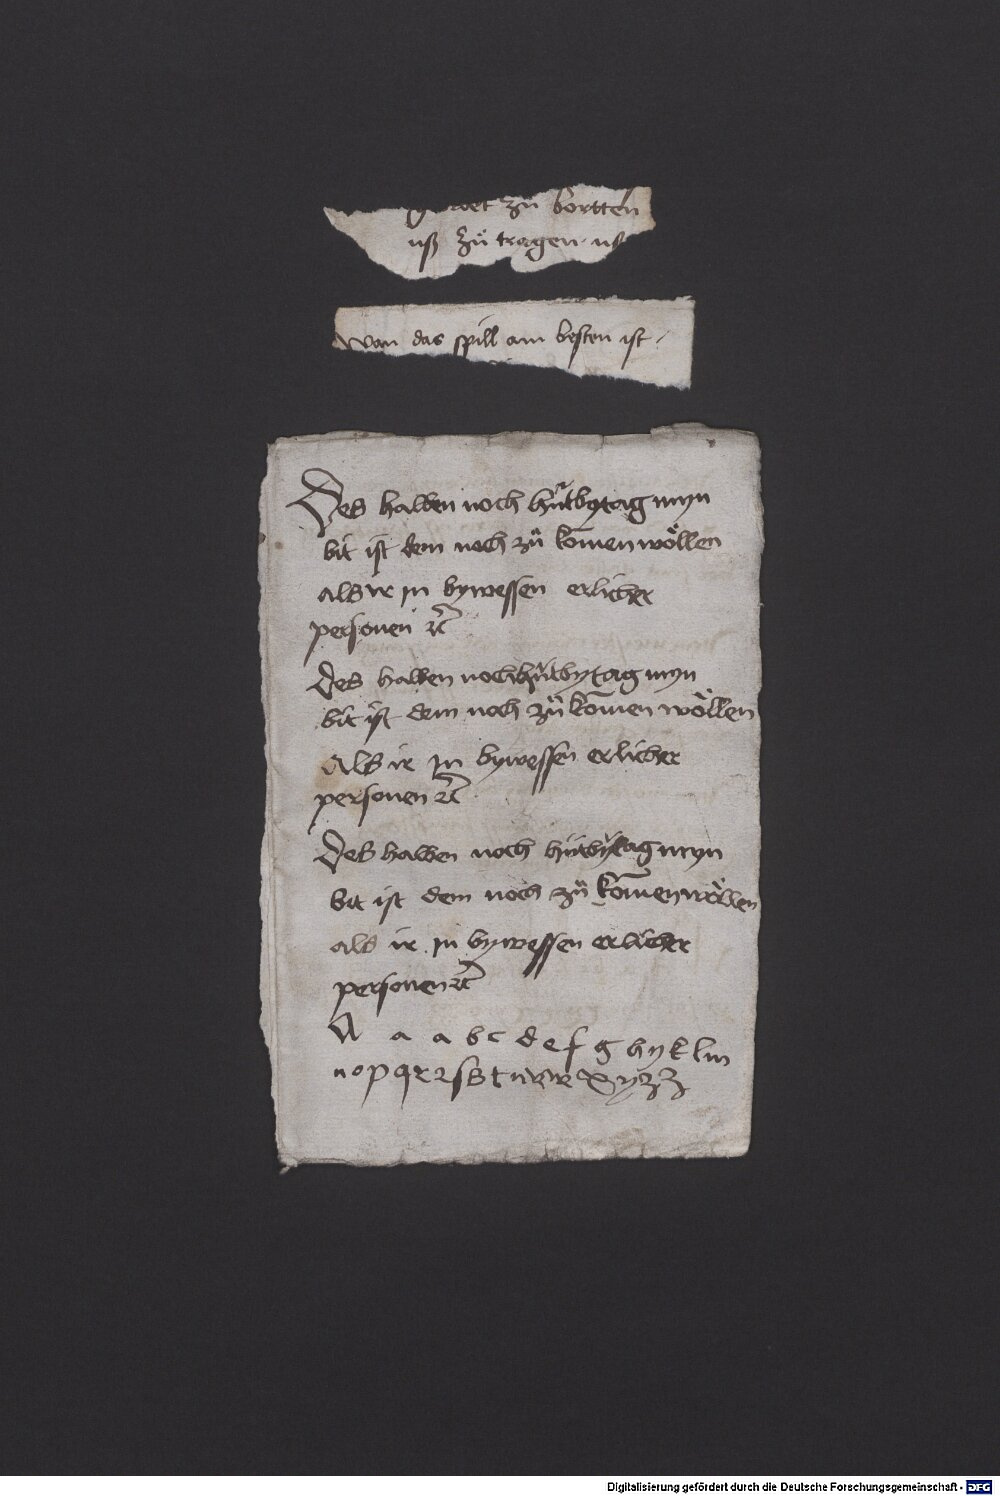 zů bortten
uß zů tragen us
wan das spill am besten ist
Des halben noch hütbytag myn
bit ist dem noch zů komen wöllen
als ir jn bywessen erlicher
personen ꝛc
Des halben noch hütbytag myn
bit ist dem noch zů komen wöllen
Als ir jn bywessen erlicher
personen ꝛc
Des halben noch hütbytag myn
bit ist dem noch zů komen wöllen
als ir jn bywessen erlicher
personen ꝛc
A a a b c d e f g h y k l m
n o p q r ꝛ ſ s t u v w x y z z
Digitalisierung gefördert durch die Deutsche Forschungsgemeinschaft - DFG